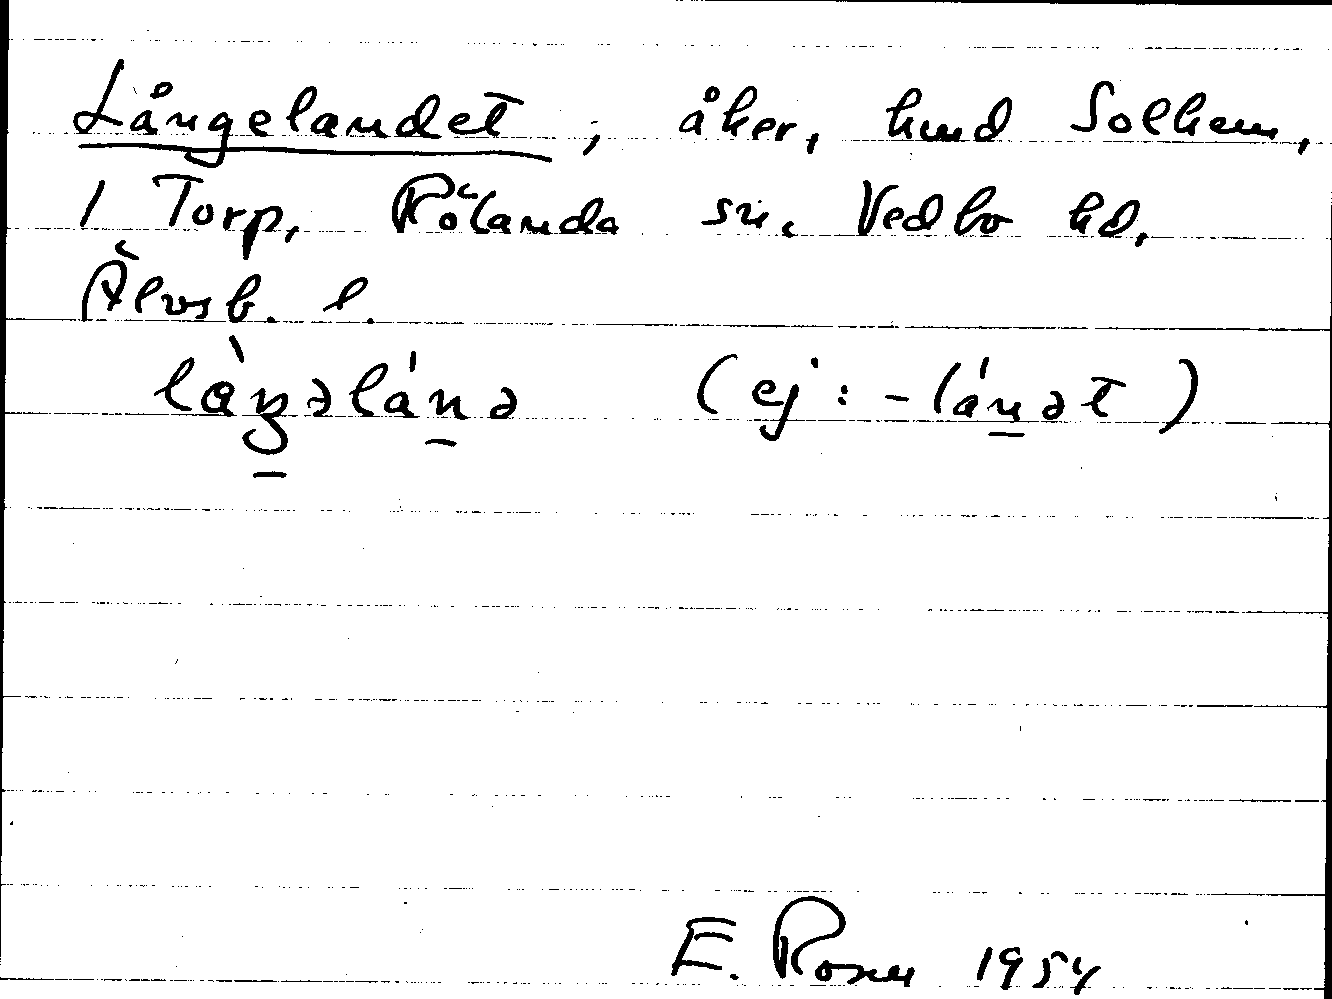 Långelandet, åker, hmd Solhem,
1 Torp, Rölanda sn. Vedbo hd.
Älvsb. l.
låŋəlánə (ej: -lánət)
E. Rosén 1954